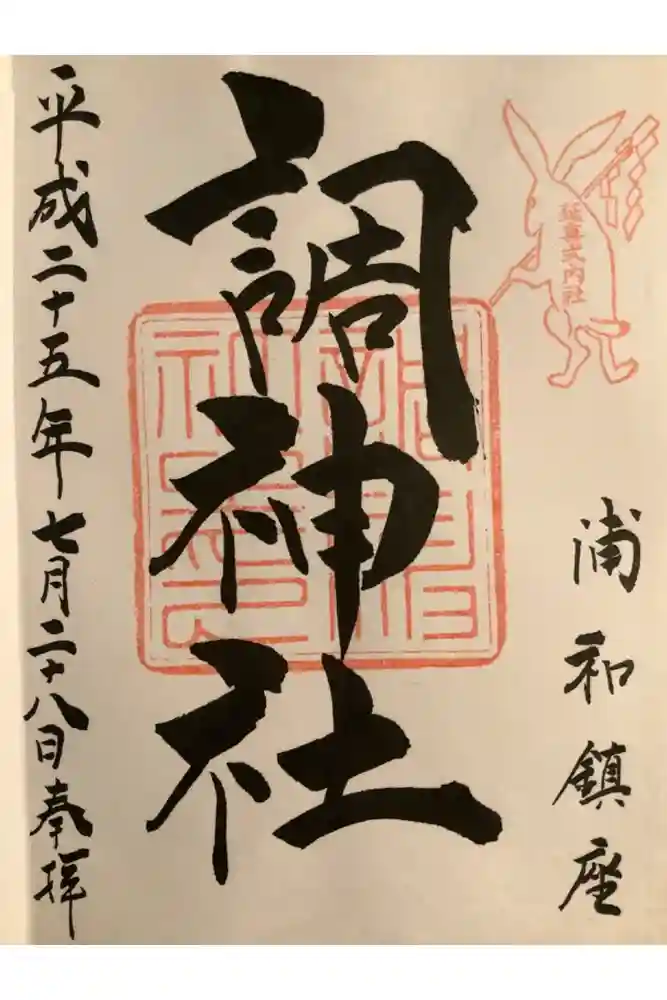 延喜式内社
浦和鎮座
調神社
平成二十五年七月二十八日奉拝